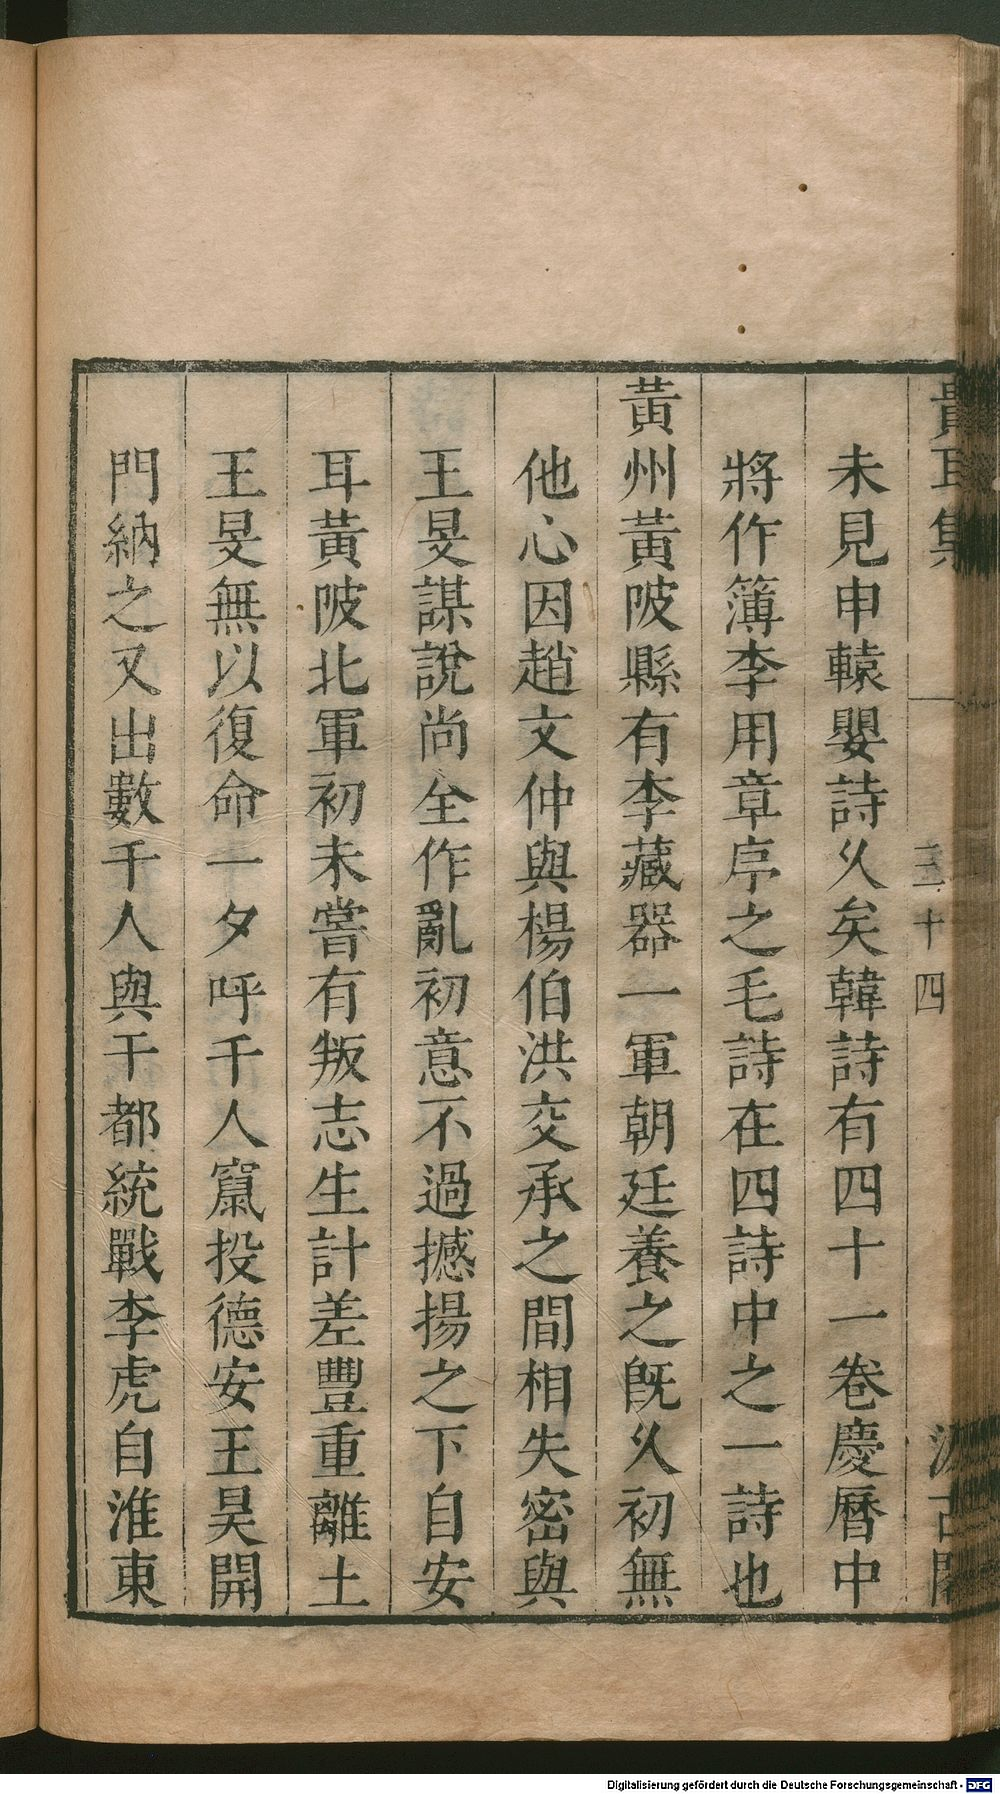 貴耳集
三十四
汲古閣
未見申轅嬰詩久矣韓詩有四十一卷慶曆中
將作簿李用章序之毛詩在四詩中之一詩也
黃州黃陂縣有李藏器一軍朝廷養之旣久初無
他心因趙文仲與楊伯洪交承之間相失密與
王旻謀說尚全作亂初意不過撼揚之下自安
耳黃陂北軍初未嘗有叛志生計差豐重離土
王旻無以復命一夕呼千人竄投德安王昊開
門納之又出數千人與干都統戰李虎自淮東
Digitalisierung gefördert durch die Deutsche Forschungsgemeinschaft - DFG